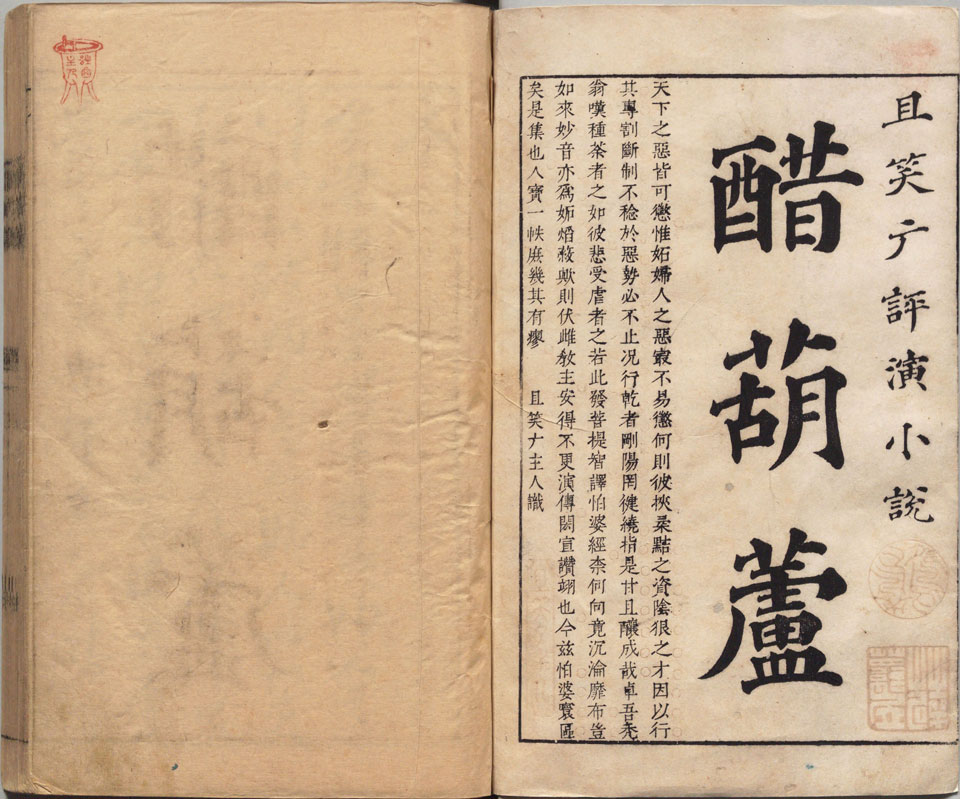 且笑广評演小說
醋葫蘆
天下之惡皆可懲惟妬婦人之惡㝡不易懲何則彼挾柔黠之資陰狠之才因以行
其專割斷制不稔於惡勢必不止况行乾者剛陽罔健繞指是甘且釀成哉卓吾秃
翁嘆種荼者之如彼悲受虐者之若此發菩提智譯怕婆經柰何向竟沉淪靡布豈
如來妙音亦爲妬歟則伏雌教主安得不更演傳閎宣讚翊也今兹怕婆寰區
矣是集也人寶一帙庶幾其有瘳 且笑广主人識